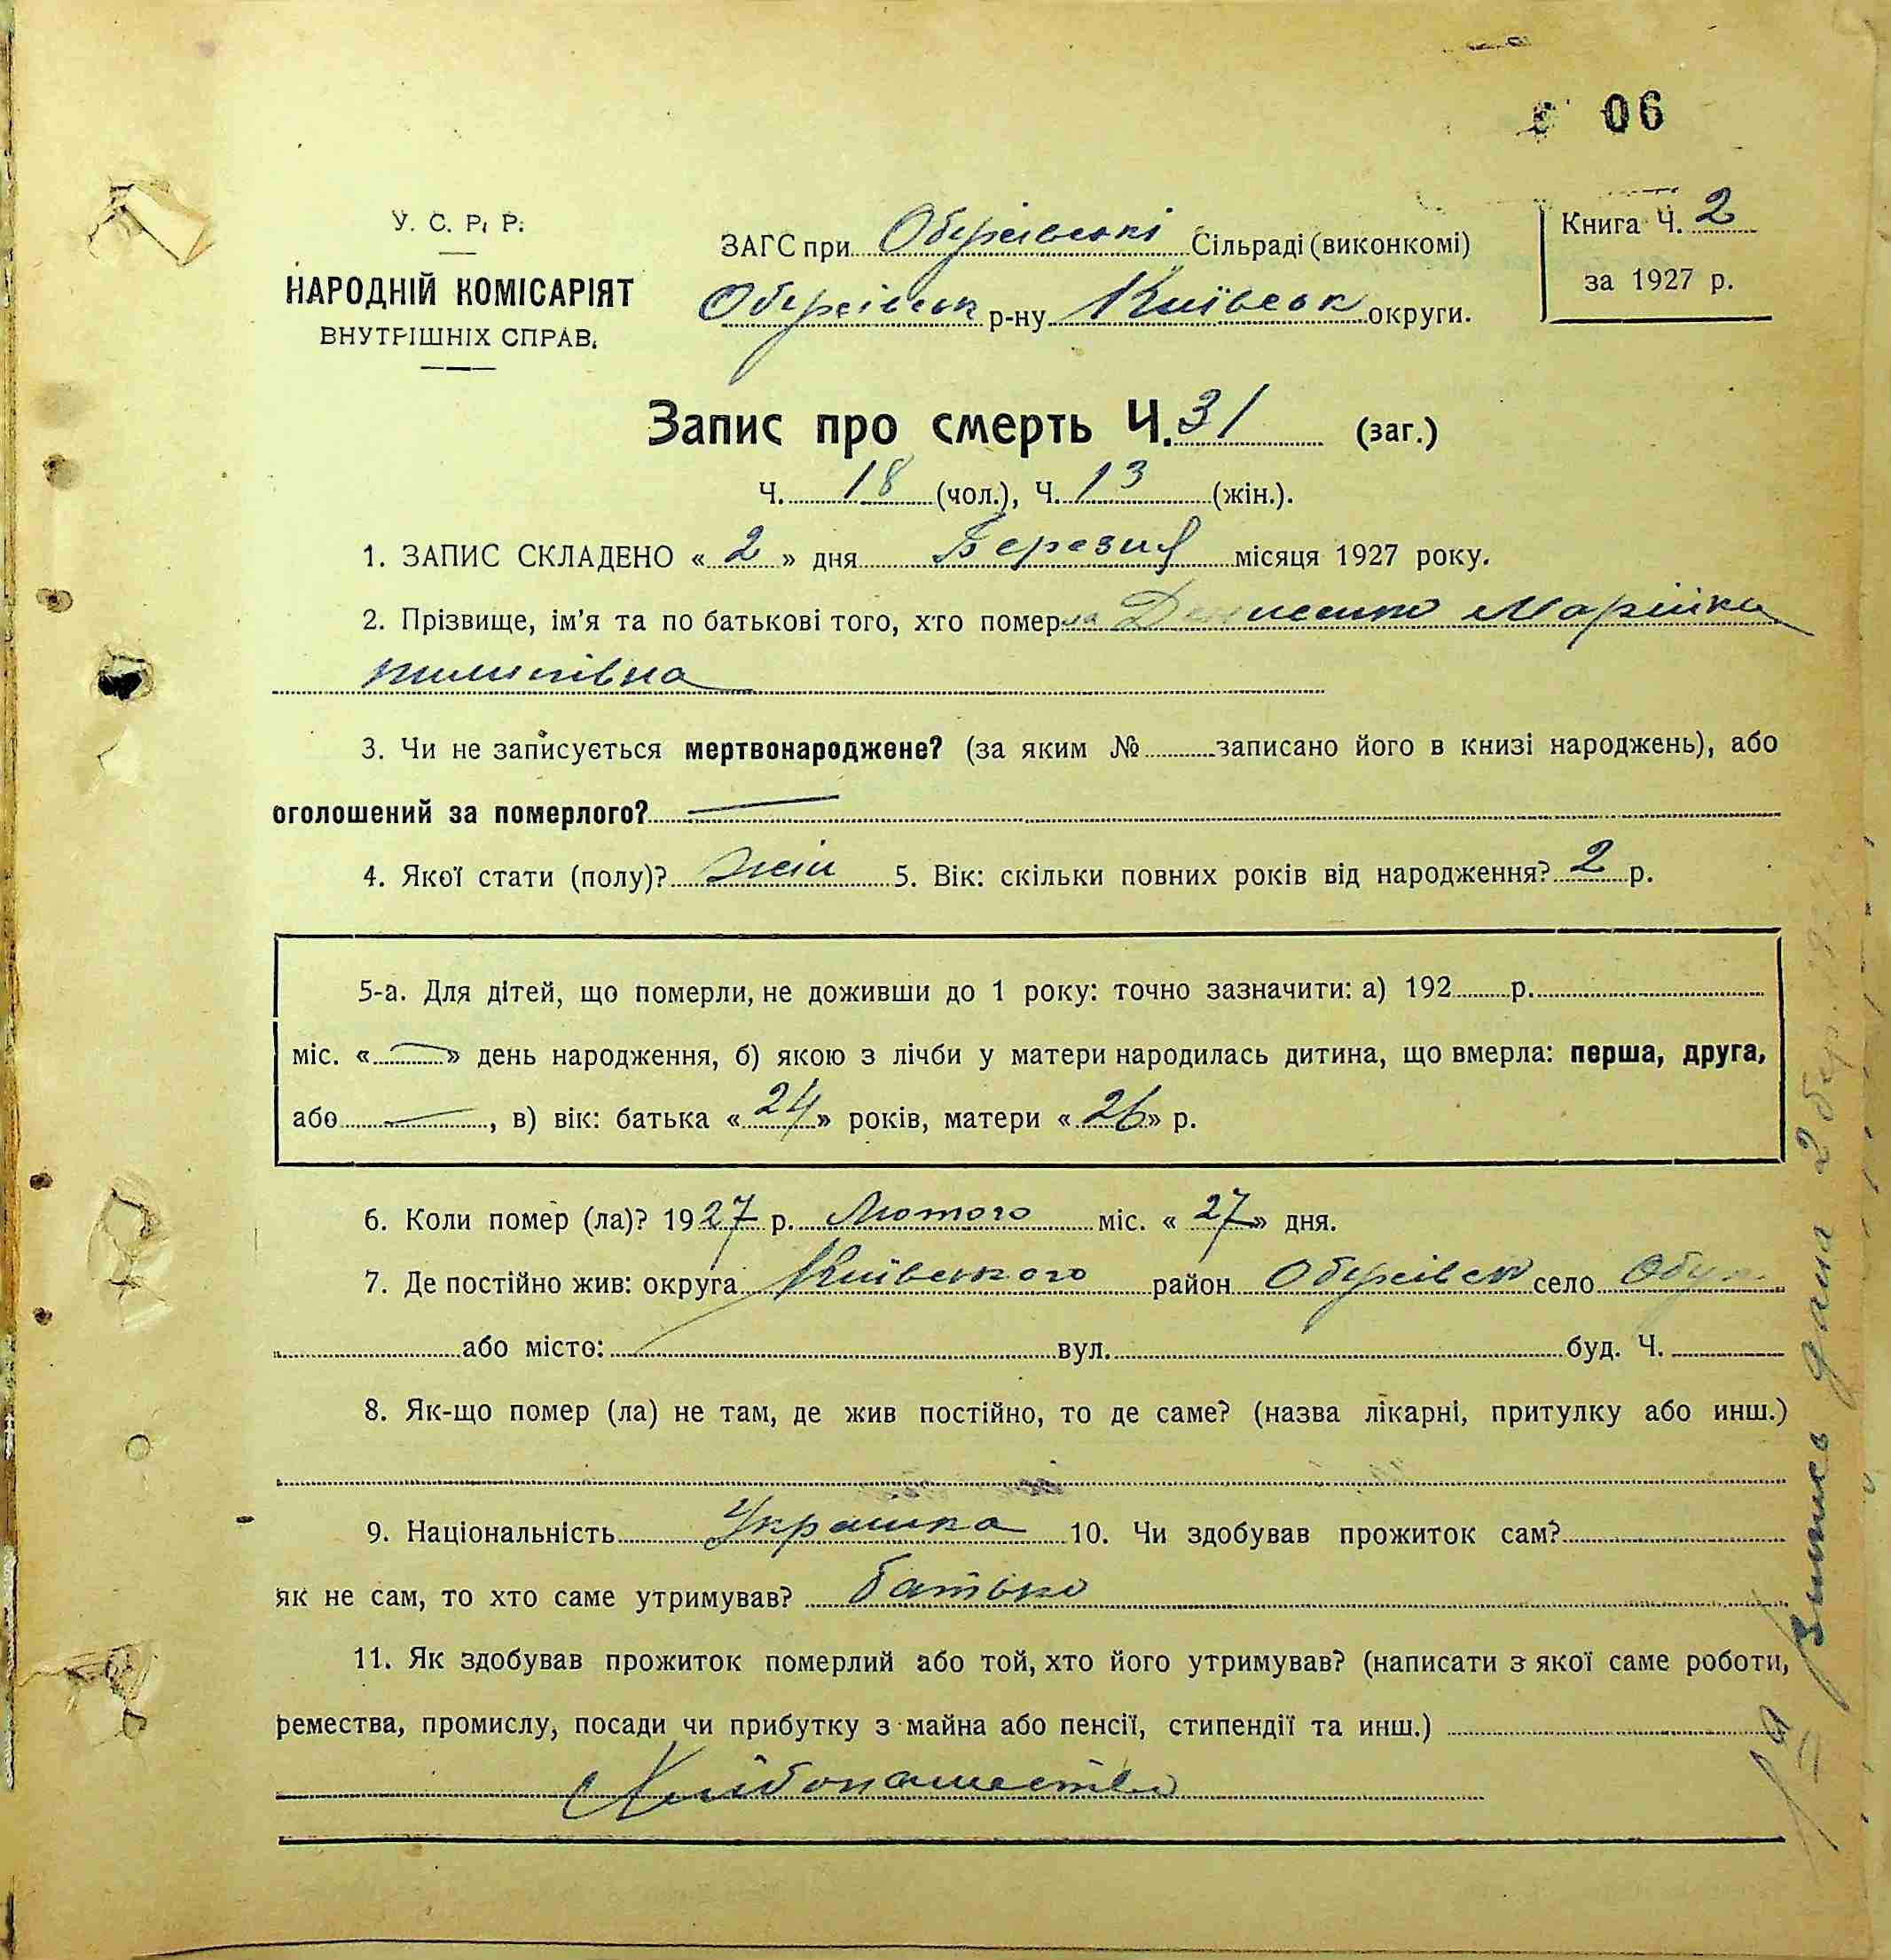 06
У. С. Р. Р.
НАРОДНІЙ КОМІСАРІЯТ
ВНУТРІШНІХ СПРАВ.
ЗАГС при Обухівські Сільраді (виконкомі)
Обухівськ р-ну Київськ округи.
Книга Ч. 2
за 1927 р.
Запис про смерть Ч. 31 (заг.)
Ч. 18 (чол.), Ч. 13 (жін.).
1. ЗАПИС СКЛАДЕНО « 2 » дня Березня місяця 1927 року.
2. Прізвище, ім'я та по батькові того, хто померла Денисенко Марійка
пилипівна
3. Чи не записується мертвонароджене? (за яким № записано його в книзі народжень), або
оголошений за померлого?
4. Якої стати (полу)? жін 5. Вік: скільки повних років від народження? 2 р.
5-а. Для дітей, що померли, не доживши до 1 року: точно зазначити: а) 192 р.
міс. « » день народження, б) якою з лічби у матери народилась дитина, що вмерла: перша, друга,
або , в) вік: батька « 24 » років, матери « 26 » р.
6. Коли помер (ла)? 1927 р. Лютого міс. « 27 » дня.
7. Де постійно жив: округа Київського район Обухівськ село Обух
або місто: вул. буд. Ч.
8. Як-що помер (ла) не там, де жив постійно, то де саме? (назва лікарні, притулку або инш.)
9. Національність Українка 10. Чи здобував прожиток сам?
як не сам, то хто саме утримував? батько
11. Як здобував прожиток померлий або той, хто його утримував? (написати з якої саме роботи,
ремества, промислу, посади чи прибутку з майна або пенсії, стипендії та инш.)
Хлібопашество